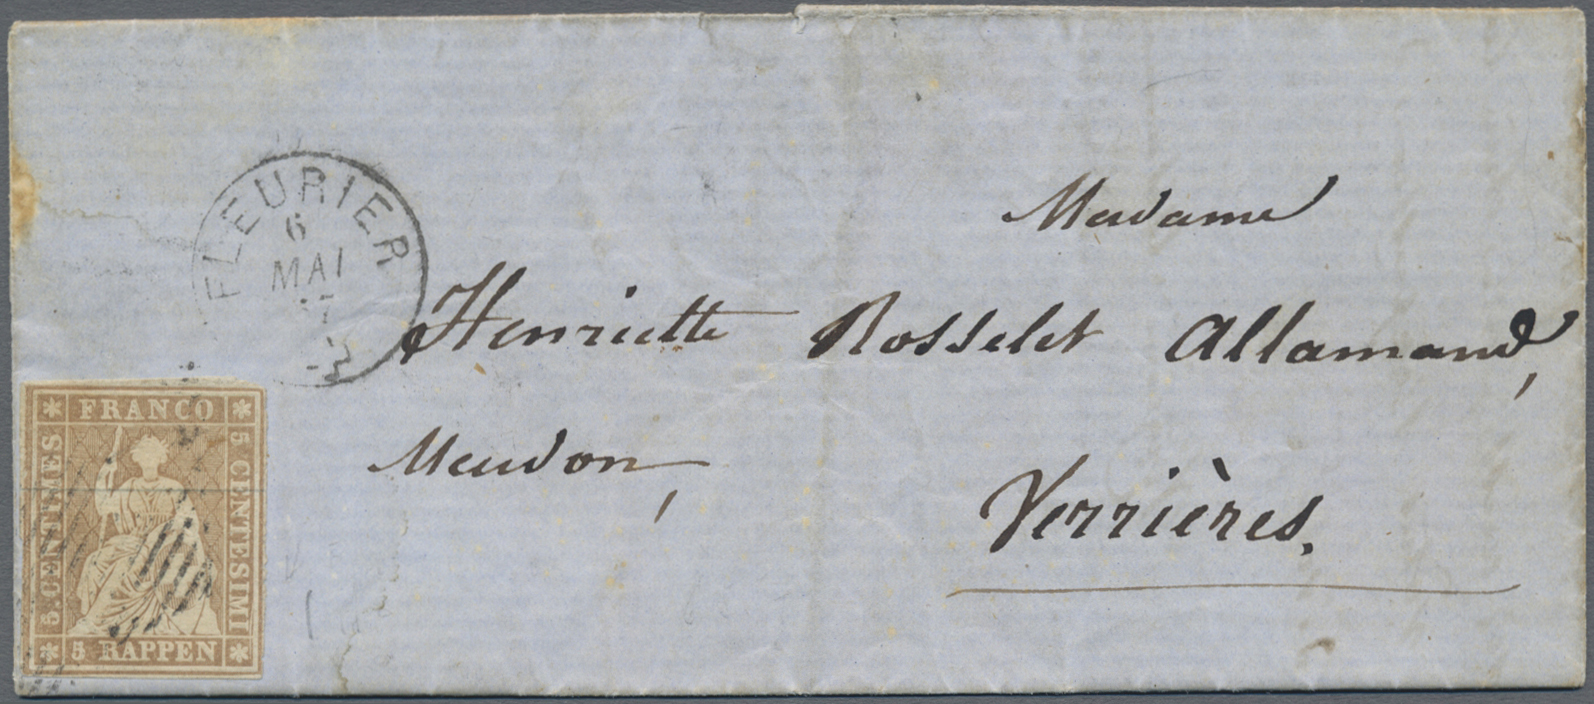 FLEURIER
6
MAI
57
Madame
Henriette Rosselet Allamand,
Meudon,
Verrières.
FRANCO
5. CENTIMES
5 CENTESIMI
5 RAPPEN